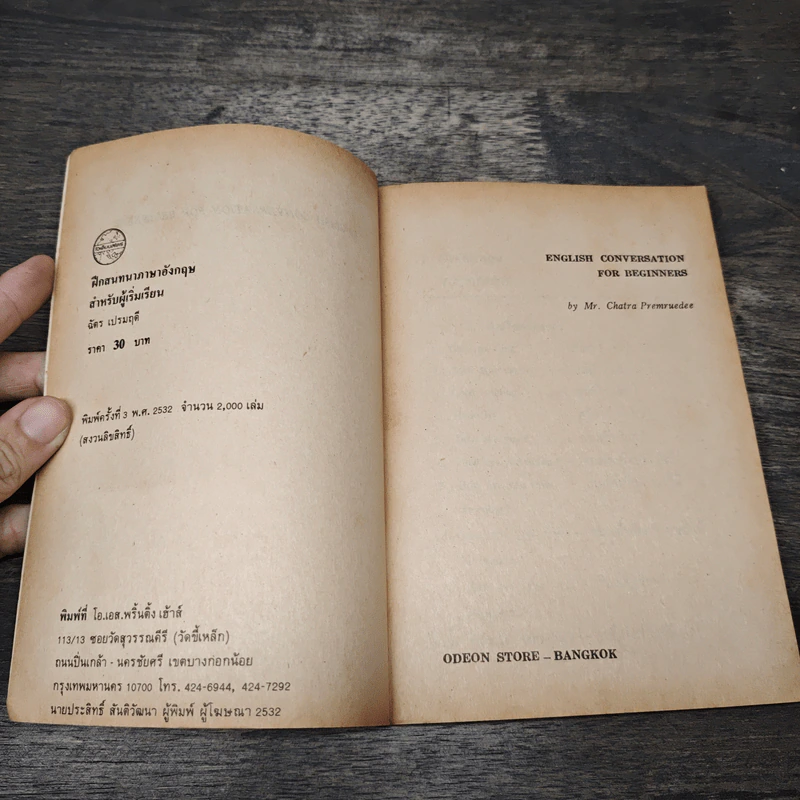 ฝึกสนทนาภาษาอังกฤษ
สำหรับผู้เริ่มเรียน
ฉัตร เปรมฤดี
ราคา 30 บาท
พิมพ์ครั้งที่ 3 พ.ศ. 2532 จำนวน 2,000 เล่ม
(สงวนลิขสิทธิ์)
พิมพ์ที่ โอ.เอส.พริ้นติ้ง เฮ้าส์
113/13 ซอยวัดสุวรรณคีรี (วัดขี้เหล็ก)
ถนนปิ่นเกล้า - นครชัยศรี เขตบางกอกน้อย
กรุงเทพมหานคร 10700 โทร. 424-6944, 424-7292
นายประสิทธิ์ สันติวัฒนา ผู้พิมพ์ ผู้โฆษณา 2532
ENGLISH CONVERSATION
FOR BEGINNERS
by Mr. Chatra Premruedee
ODEON STORE – BANGKOK